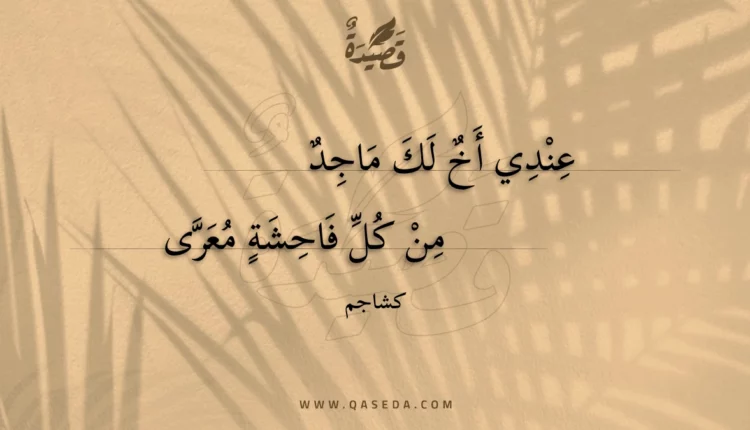 قَصِيْدَةٌ
عِنْدِي أَخٌ لَكَ مَاجِدٌ
مِنْ كُلِّ فَاحِشَةٍ مُعَرَّى
كشاجم
WWW.QASEDA.COM